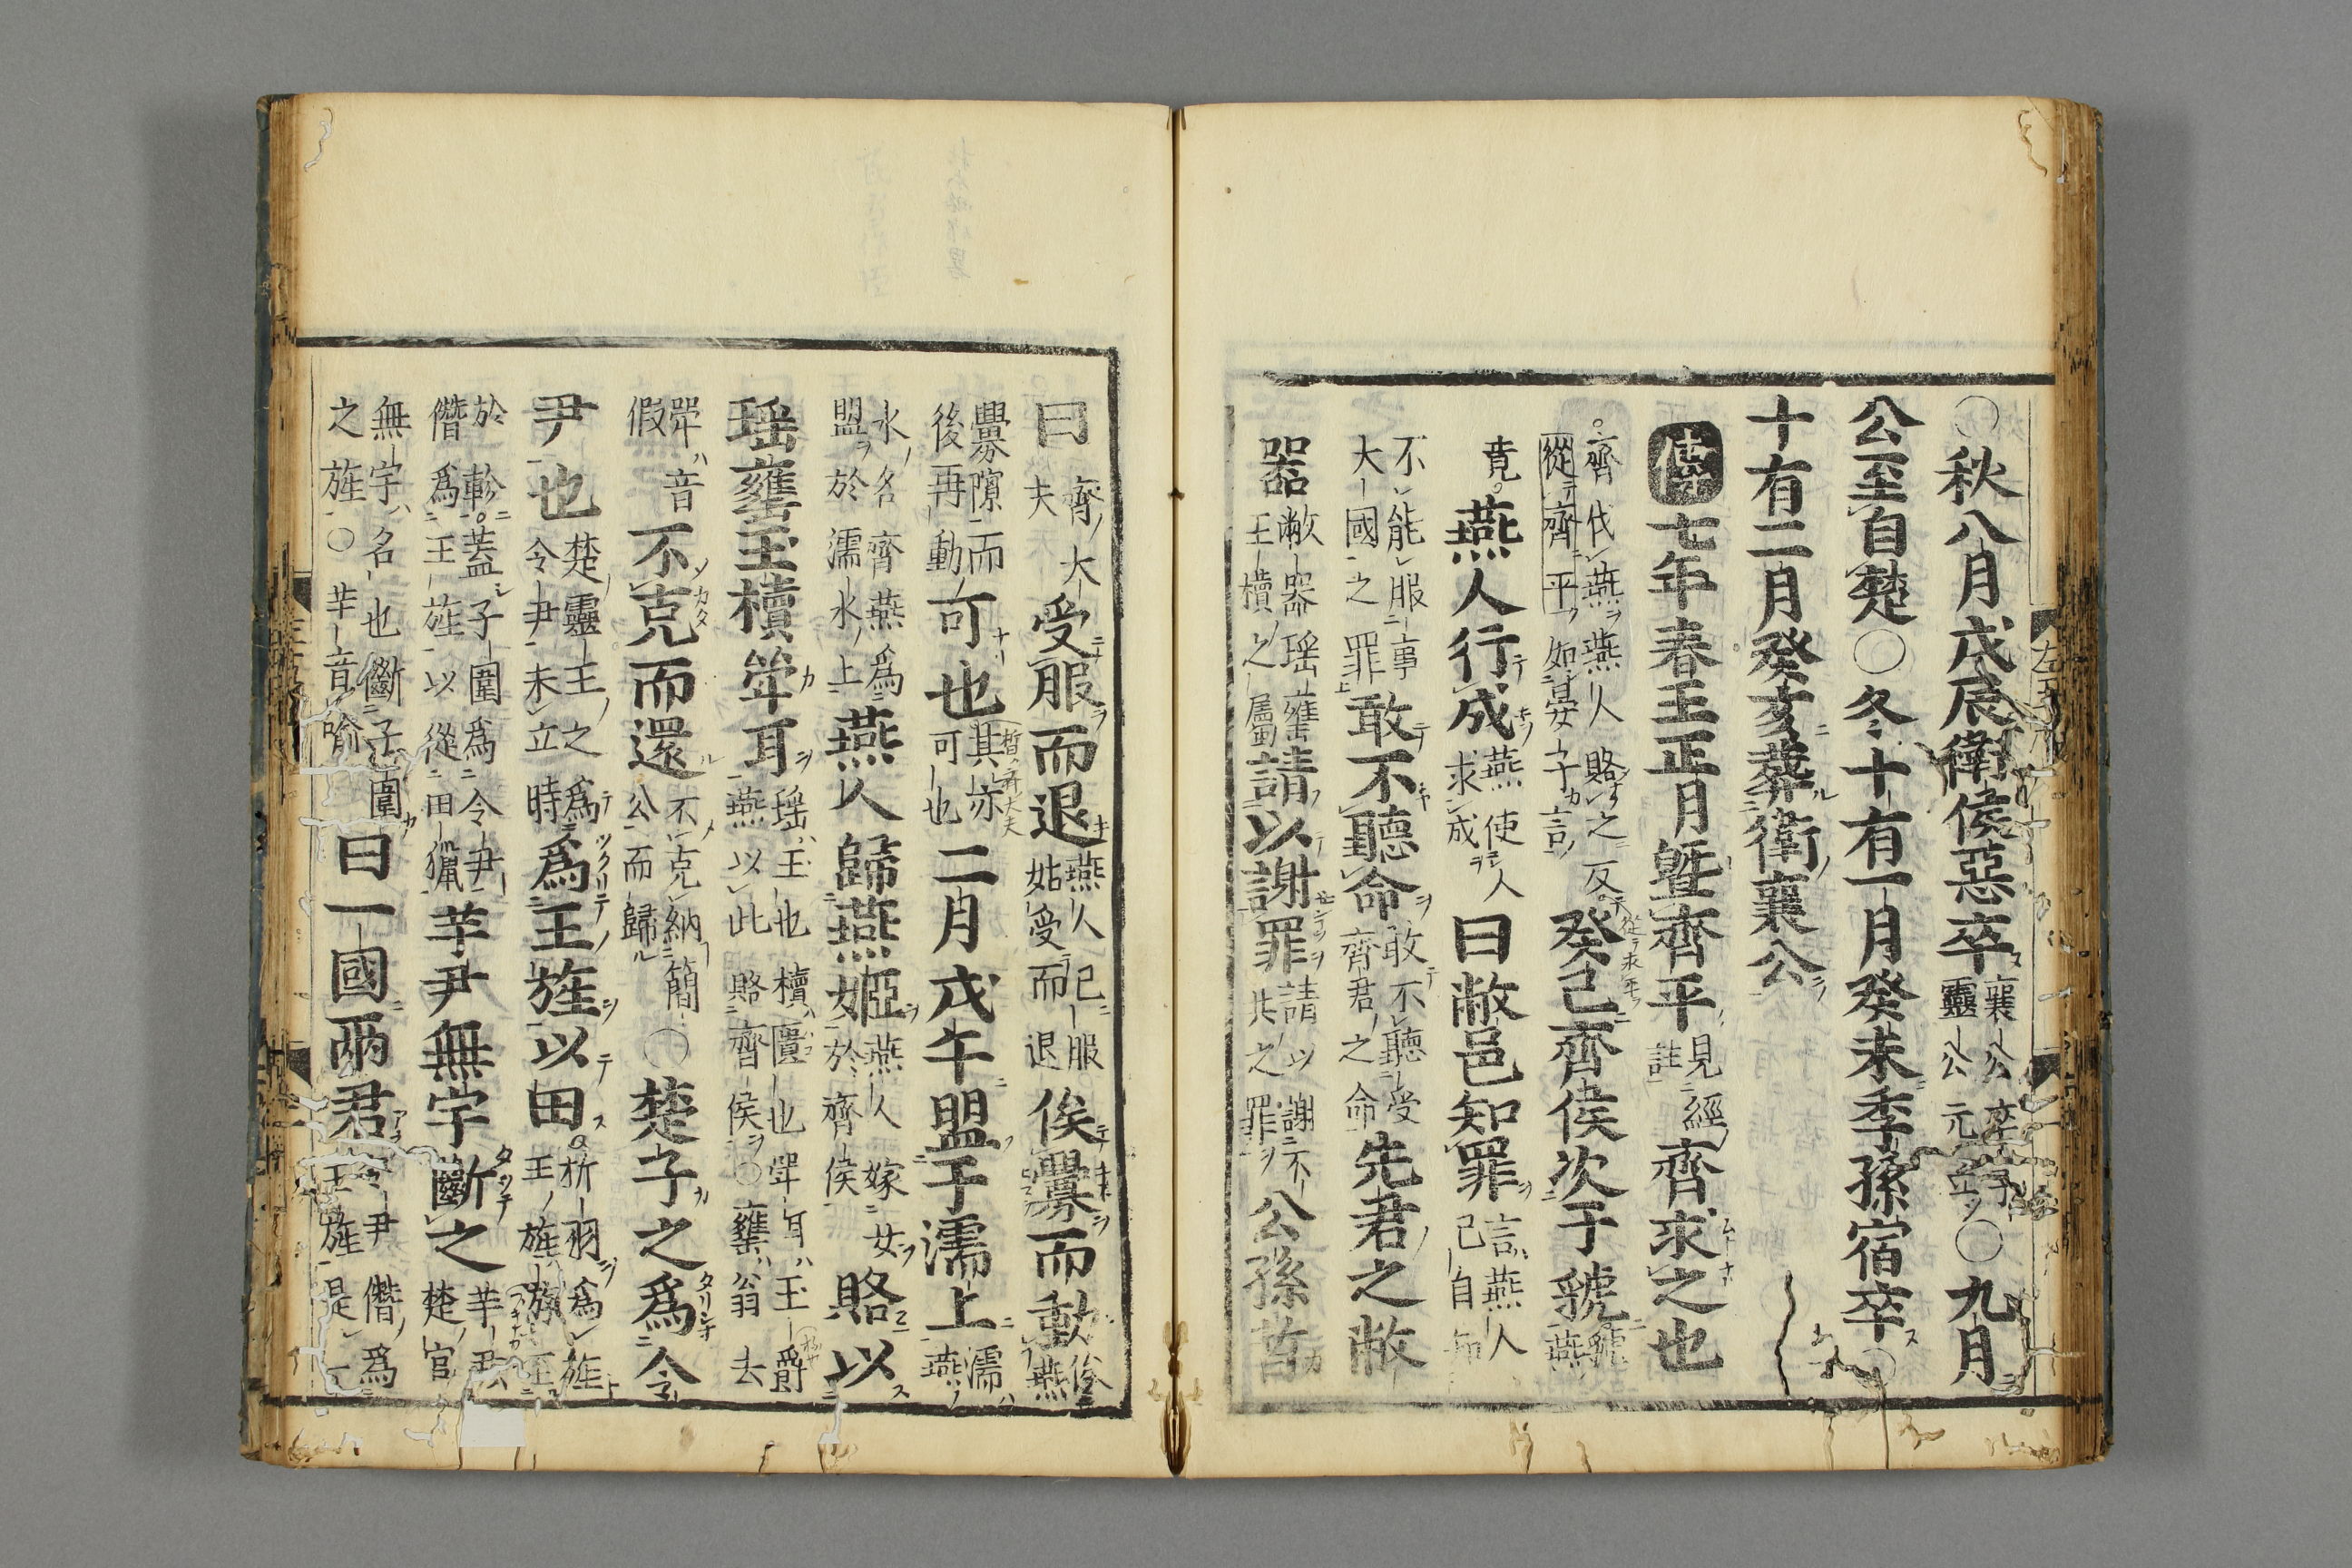 ○秋八月戊辰衛侯惡卒襄公卒子靈公元立○九月
公至自楚○冬十有一月癸未季孫宿卒○
十有二月癸亥葬衛襄公
傳七年春王正月曁齊平見經註齊求之也
齊伐燕燕人賂之反從齊平如晏子言癸已齊侯次于虢虢燕
竟燕人行成燕使人求成曰敝邑知罪言燕人已自知
不能服事大國之罪敢不聽命敢不聽受齊君之命先君之敝
器敝器瑶罋玉櫝之屬請以謝罪請以謝不共之罪公孫晳
曰齊大夫受服而退燕人已服姑受而退俟釁而動俟燕
釁隙而後再動可也其亦可也二月戊午盟于濡上濡燕
水名齊燕爲盟於濡水上燕人歸燕姬燕人嫁女於齊侯賂以
瑶罋玉櫝斝耳瑶玉也櫝匱也斝耳玉爵燕以此賂齊侯○罋翁去
斝音假不克而還不克納簡公而歸○楚子之爲令
尹也楚靈王之爲令尹未立時爲王旌以田析羽爲旌王旌旗至
於軫蓋子圍爲令尹僭爲王旌以從田獵芊尹無宇斷之芊尹楚官
無宇名也斷子圍之旌○芊音喻曰一國兩君令尹僭爲王旌是